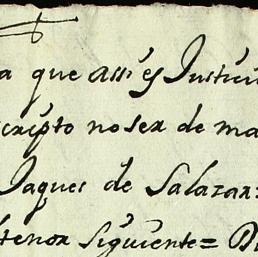 a que assi es Justici
cripto no ser de ma
Jaques de Salazar=
tenor siguiente= D